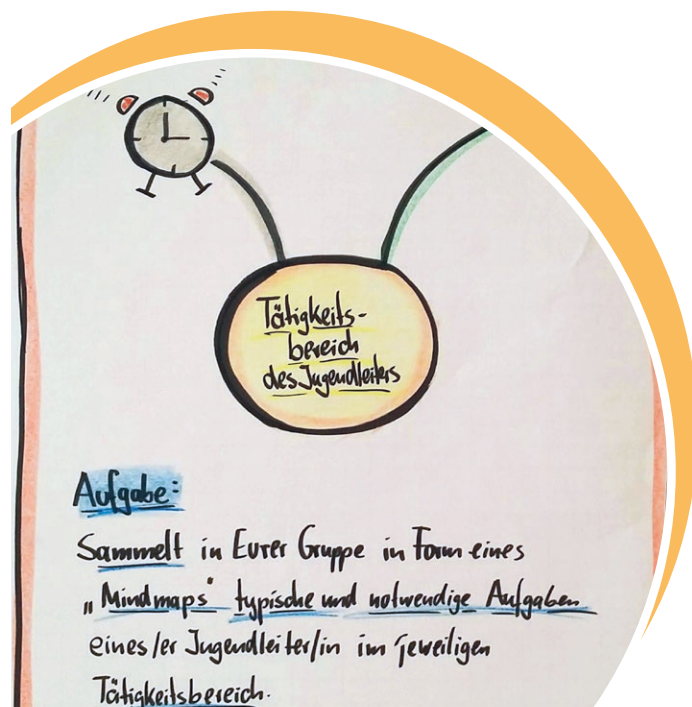 Tätigkeits-
bereich
des Jugendleiters
Aufgabe:
Sammelt in Eurer Gruppe in Form eines
„Mindmaps" typische und notwendige Aufgaben
eines/er Jugendleiter/in im jeweiligen
Tätigkeitsbereich.